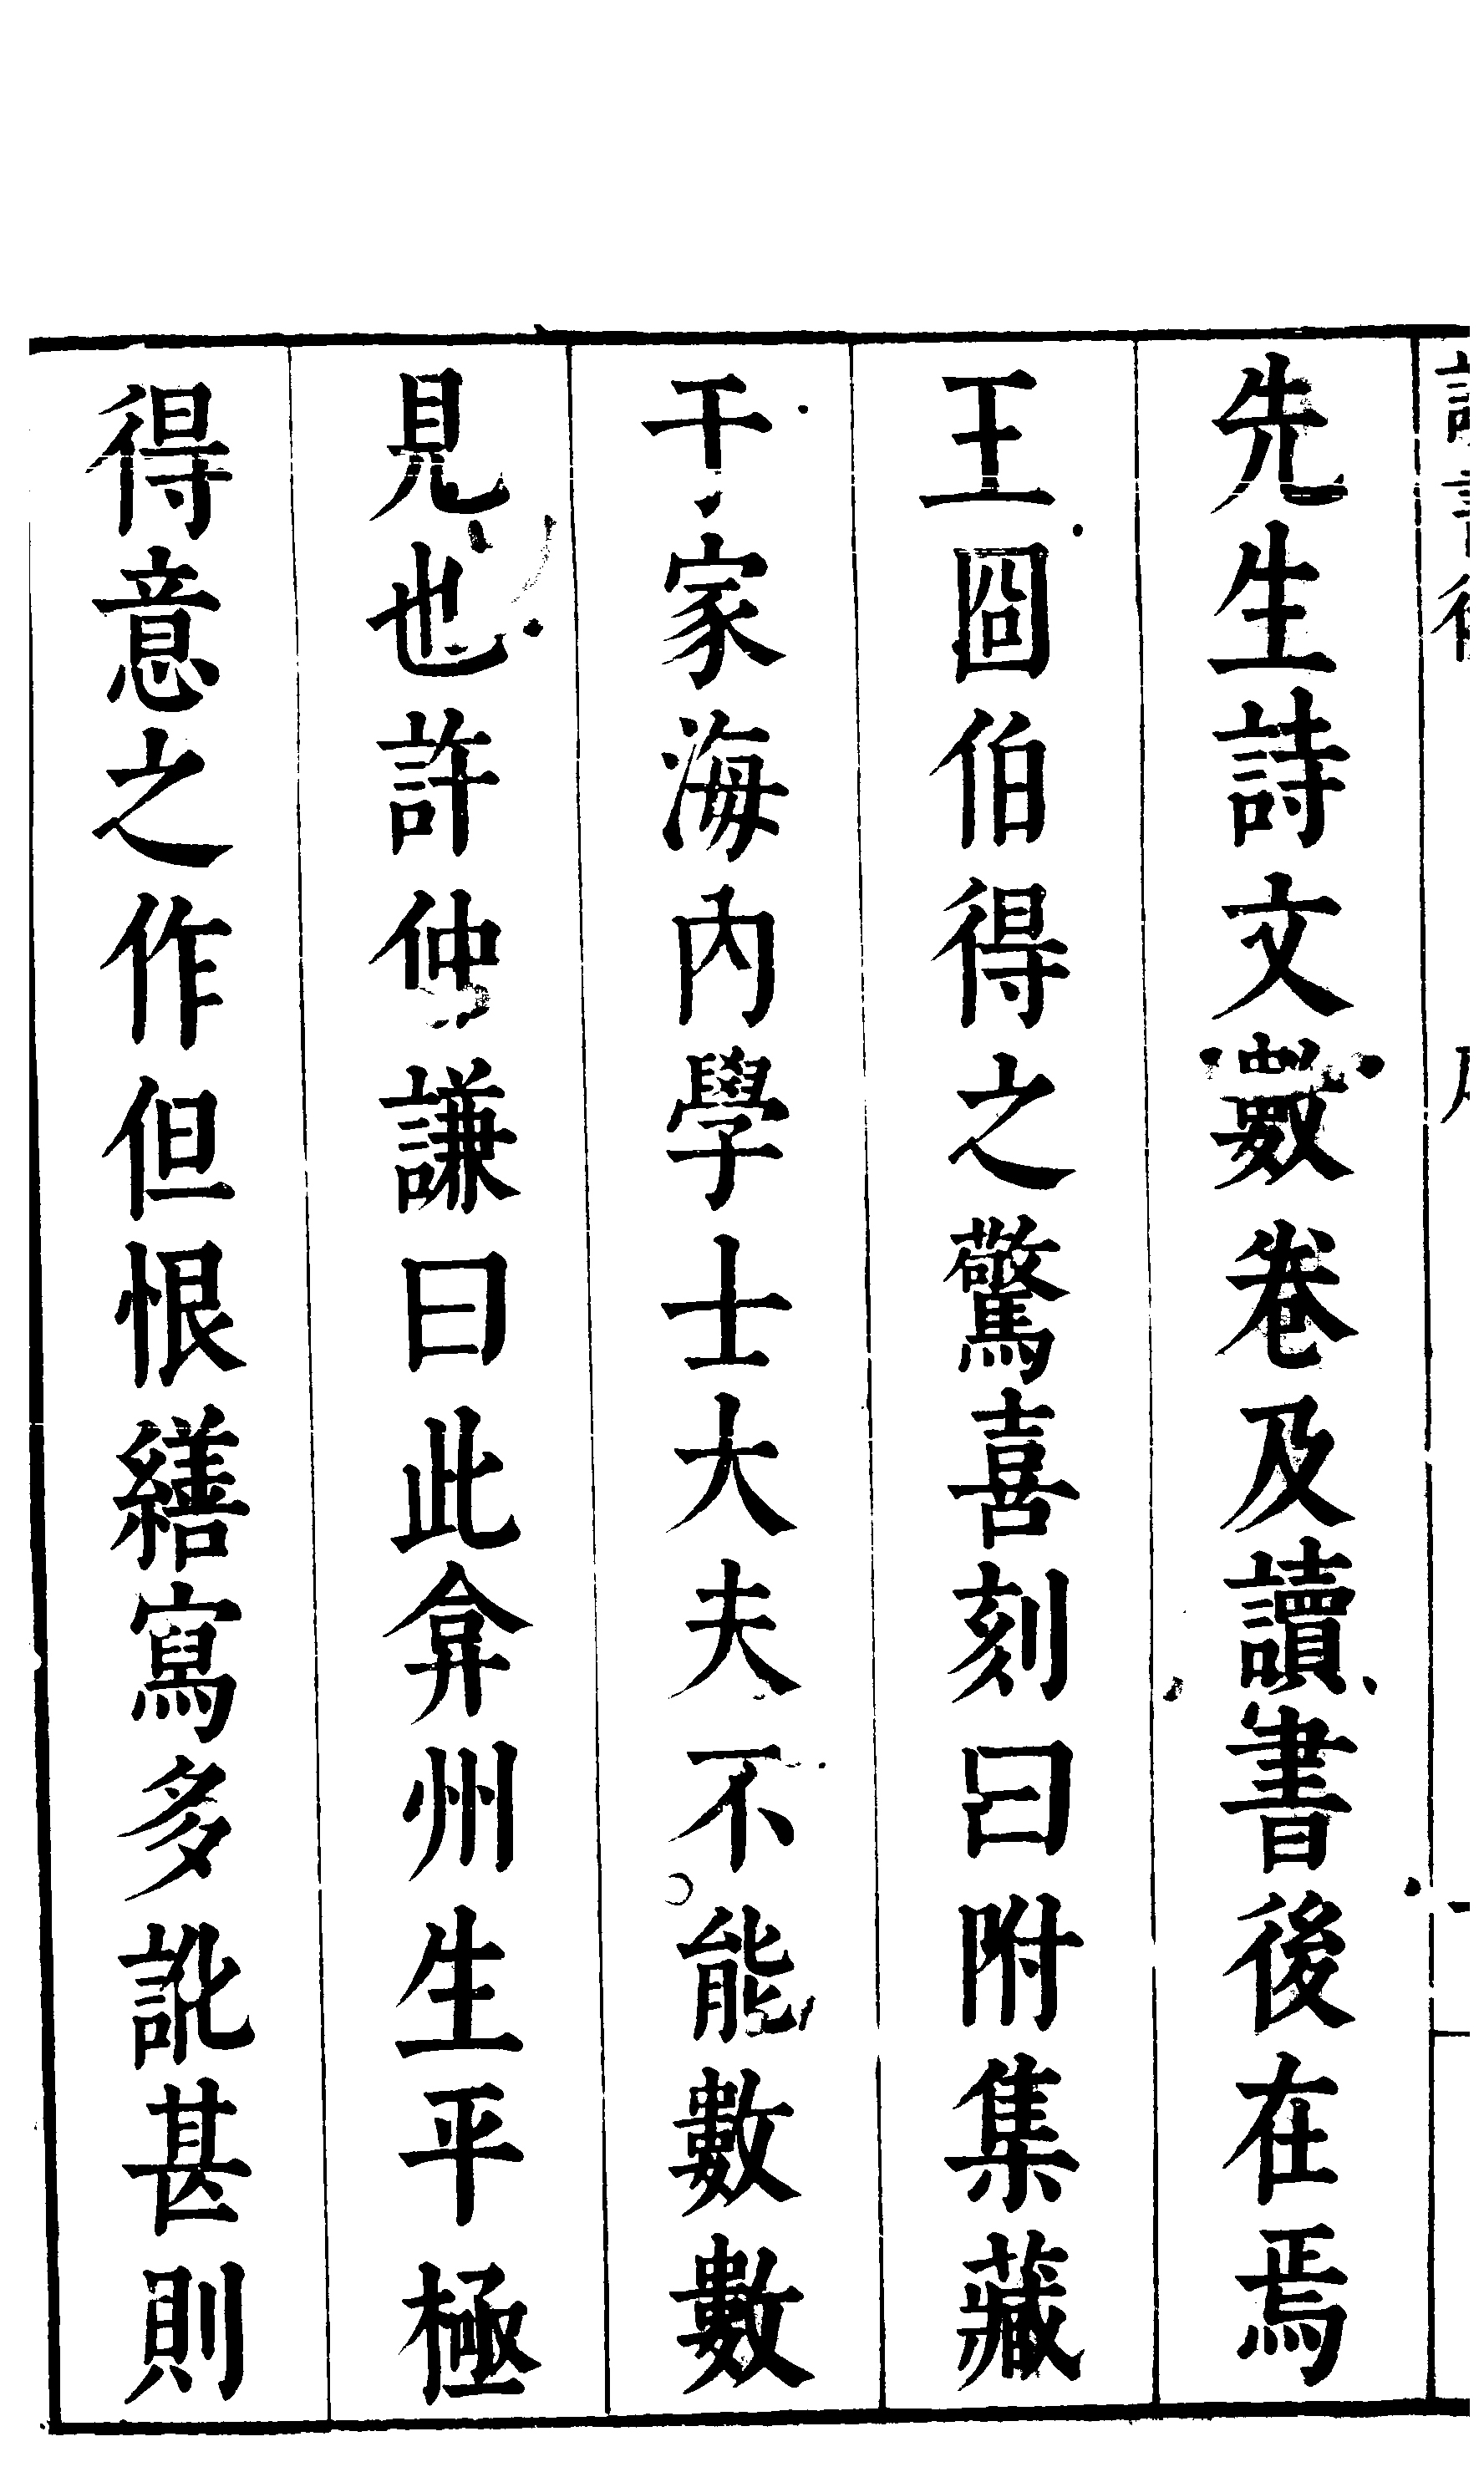 先生詩文數卷及讀書後在焉
王囧伯得之驚喜刻曰附集藏
于家海內學士大夫不能數數
見也許仲謙曰此弇州生平極
得意之作但恨繕寫多訛甚則